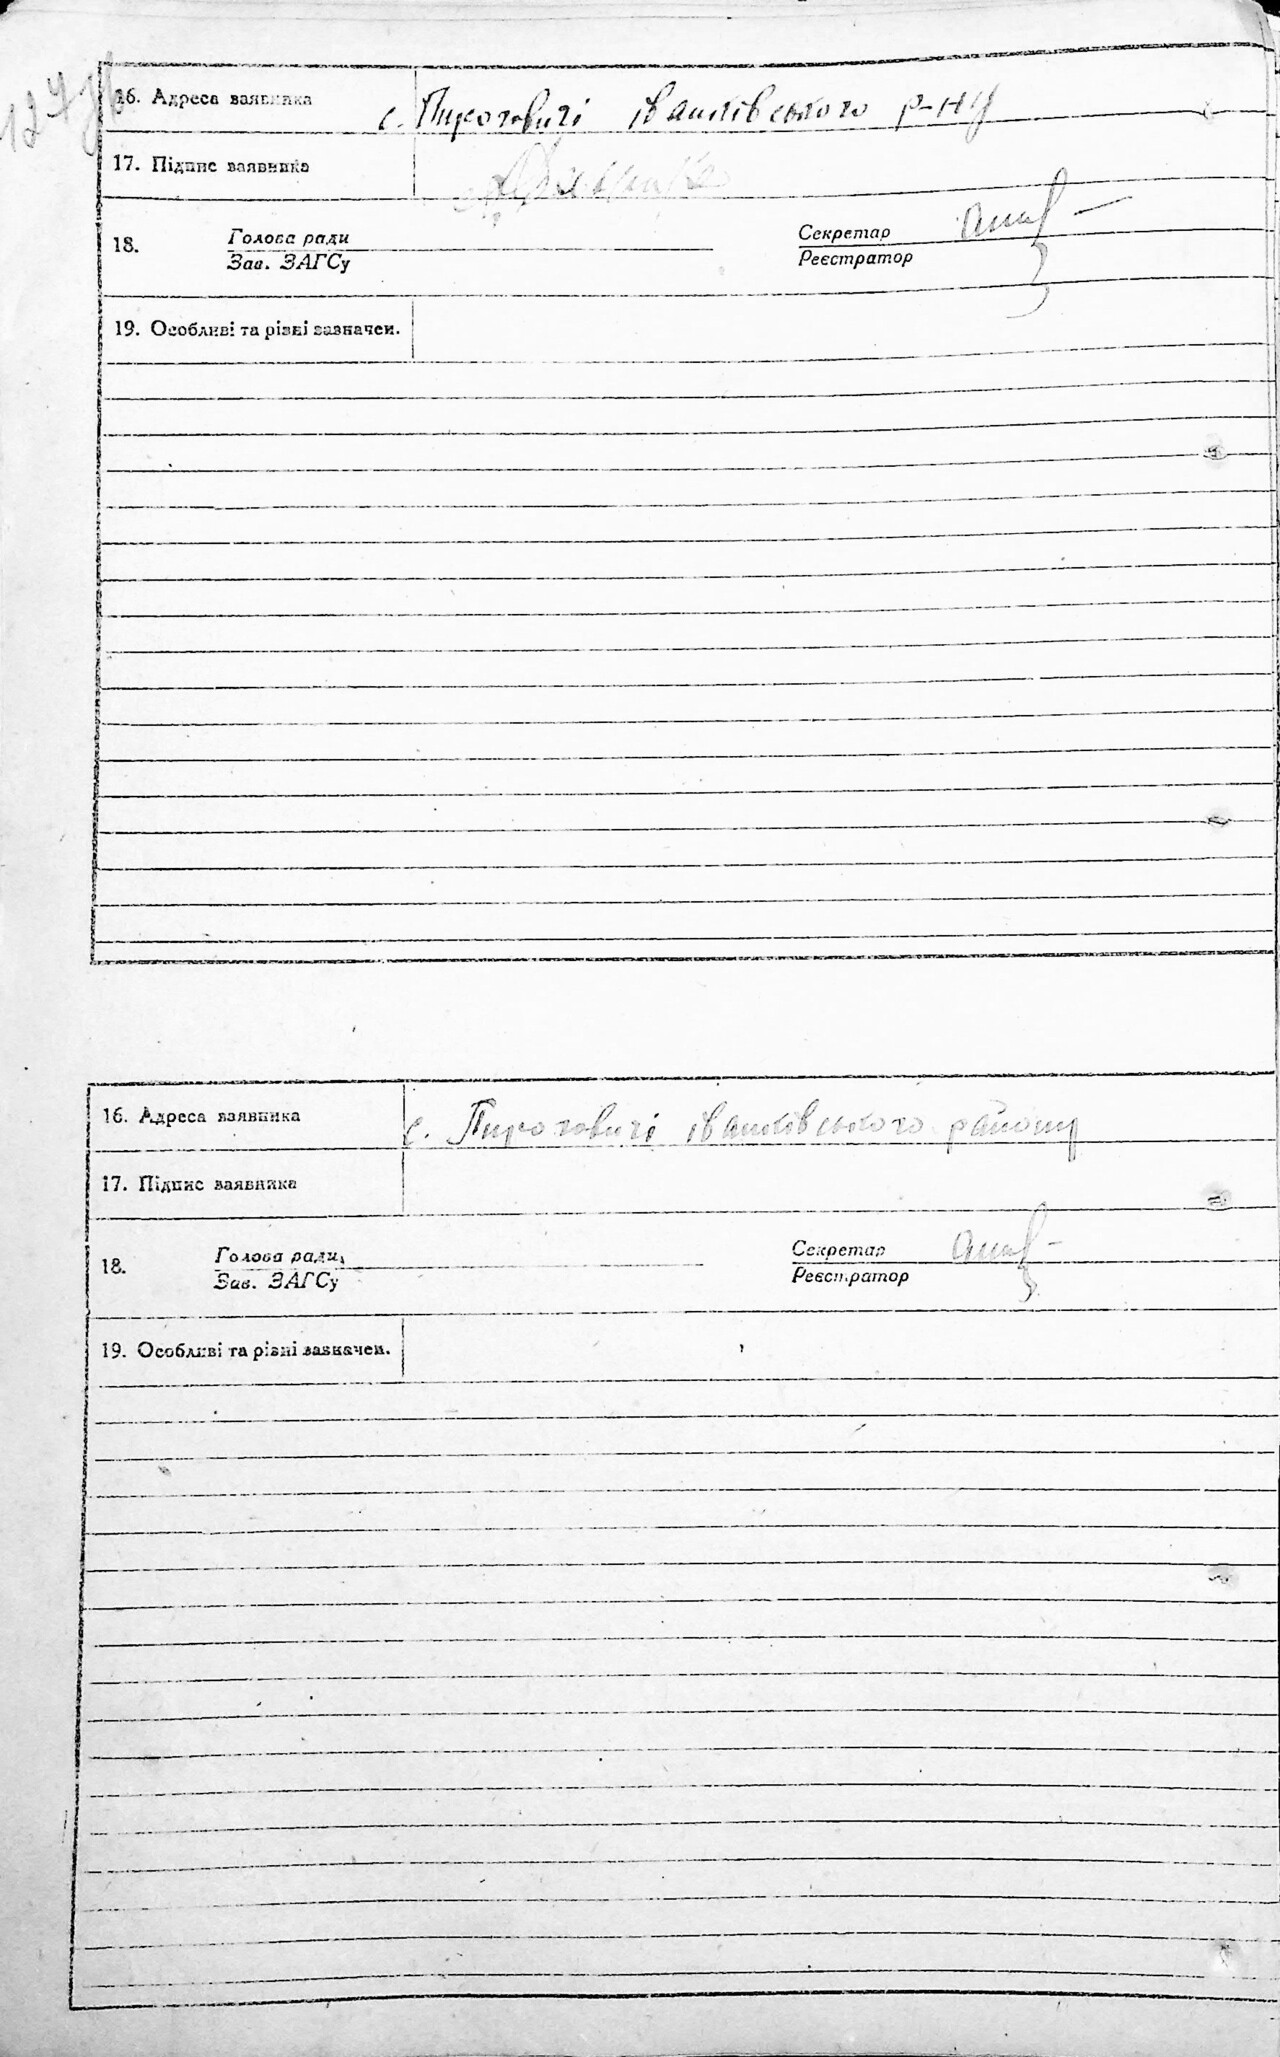 127
16. Адреса заявника с. Пироговичі іванківського р-ну
17. Підпис заявника
18. Голова ради Секретар
Зав. ЗАГСу Реєстратор
19. Особливі та різні зазначен.
16. Адреса заявника с. Пироговичі іванківського району
17. Підпис заявника
18. Голова ради, Секретар
Зав. ЗАГСу Реєстратор
19. Особливі та різні зазначен.